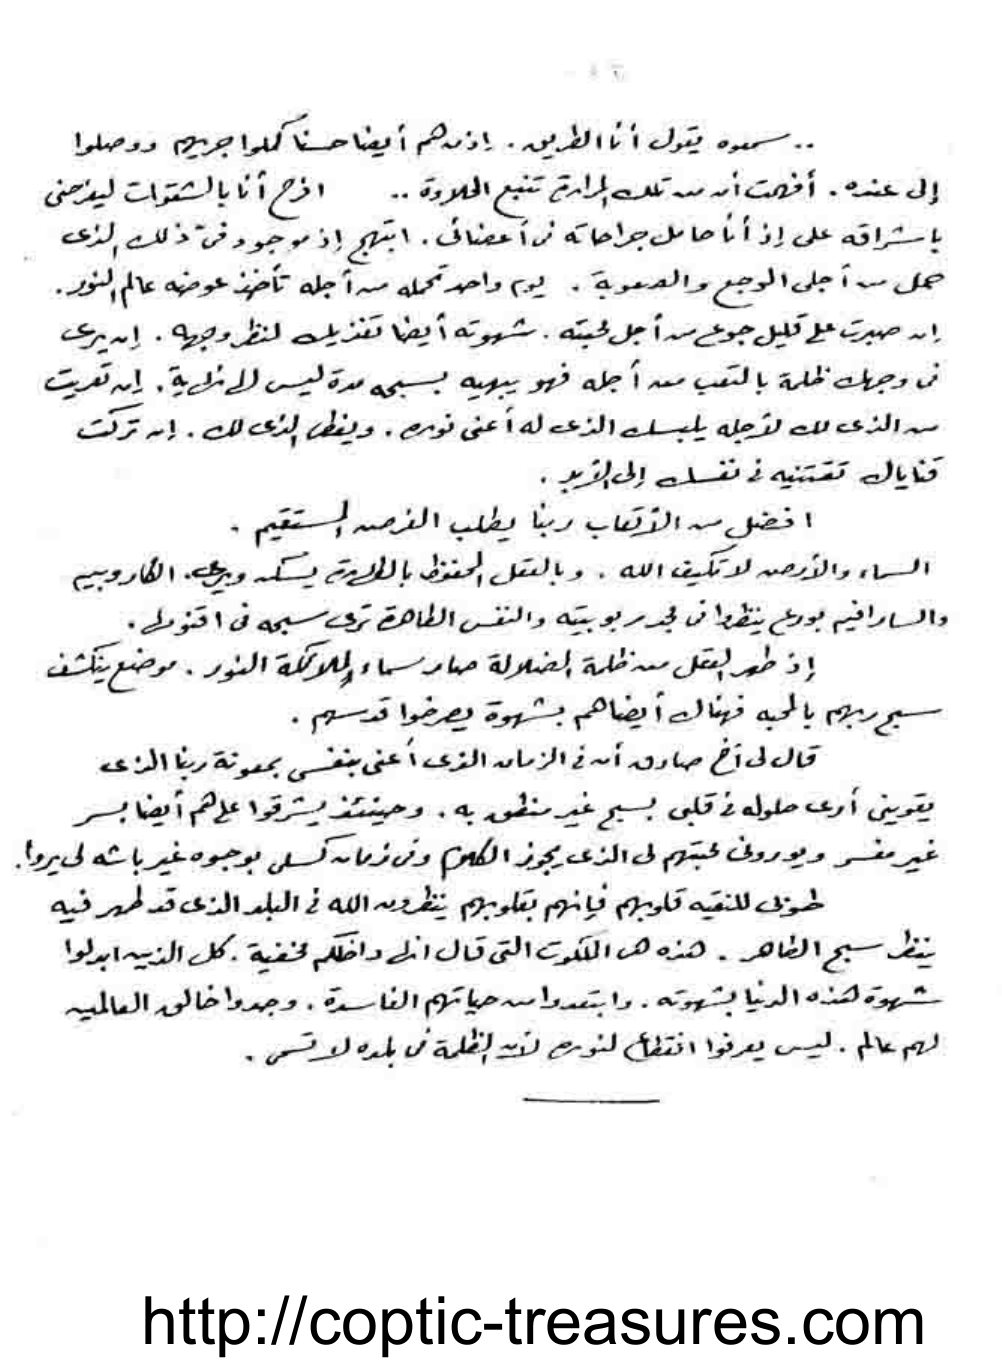 .. سمعوه يقول أنا الطريق . إذن هم أيضا حسنًا كملوا جريهم ووصلوا
إلى عنده . أفهمت أن من تلك المرارة تنبع الحلاوة .. افرح أنا بالشقوات ليفرحنى
باشراقه على إذ أنا حامل جراحاته فى أعضائى . ابتهج إذ موجود فىّ ذلك الذى
حمل من أجلى الوجع والصعوبة . يوم واحد تحمله من أجله تأخذ عوضه عالم النور .
إن صبرت على قليل جوع من أجل محبته . شهوته أيضا تغذيك لنظر وجهه . إن يرى
فى وجهك ظلمة بالتعب من أجله فهو يبهيه بسبحه مدة ليس لها نهاية . إن تعريت
من الذى لك لأجله يلبسك الذى له أعنى نوره . ويغطى الذى لك . إن تركت
قناياك تقتنيه فى نفسك إلى الأبد .
افضل من الأتعاب ربنا يطلب الغرض المستقيم .
السماء والأرض لا تكيف الله . وبالعقل المحفوظ بالطهارة يسكن ويرى . الكاروبيم
والسارافيم بورع ينظروا فى مجد ربوبيته والنفس الطاهرة ترى سبحه فى اقنومها .
إذ طهر العقل من ظلمة الضلالة صار سماء لملائكة النور . موضع ينكشف
سبح ربهم بالمحبه فهناك أيضا هم بشهوة يصرخوا قدسهم .
قال لى أخ صادق أن فى الزمان الذى أعنى بنفسى بمعونة ربنا الذى
يقوينى أرى حلوله فى قلبى بسبح غير منطوق به . وحينئذ يشرقوا علىّ هم أيضا بسر
غير مفسر ويورونى محبتهم لى الذى يجوز الكلام وفى زمان كسلى بوجوه غير باشه لى يروا .
طوبى للنقيه قلوبهم فإنهم بقلوبهم ينظرون الله فى البلد الذى قد طهر فيه
ينظر سبح الظاهر . هذه هى الملكوت التى قال انها داخلكم مخفية . كل الذين ابدلوا
شهوة هذه الدنيا بشهوته . وابتعدوا من حياتهم الفاسدة . وجدوا خالق العالمين
لهم عالم . ليس يعرفوا انقطاع لنوره لأن الظلمة فى بلده لا تسمى .
http://coptic-treasures.com